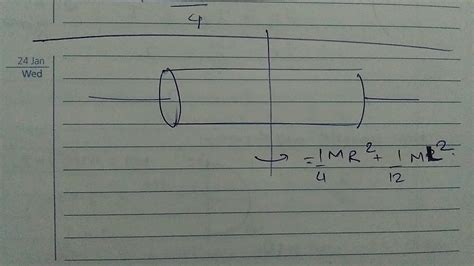 4
24 Jan
Wed
= 1/4 MR² + 1/12 ML²